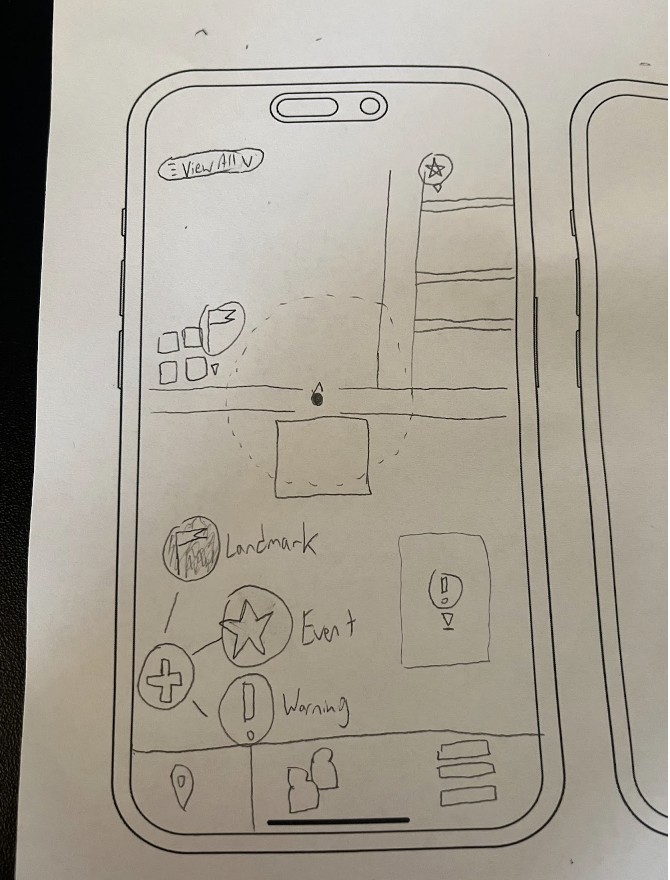 View All
Landmark
Event
Warning